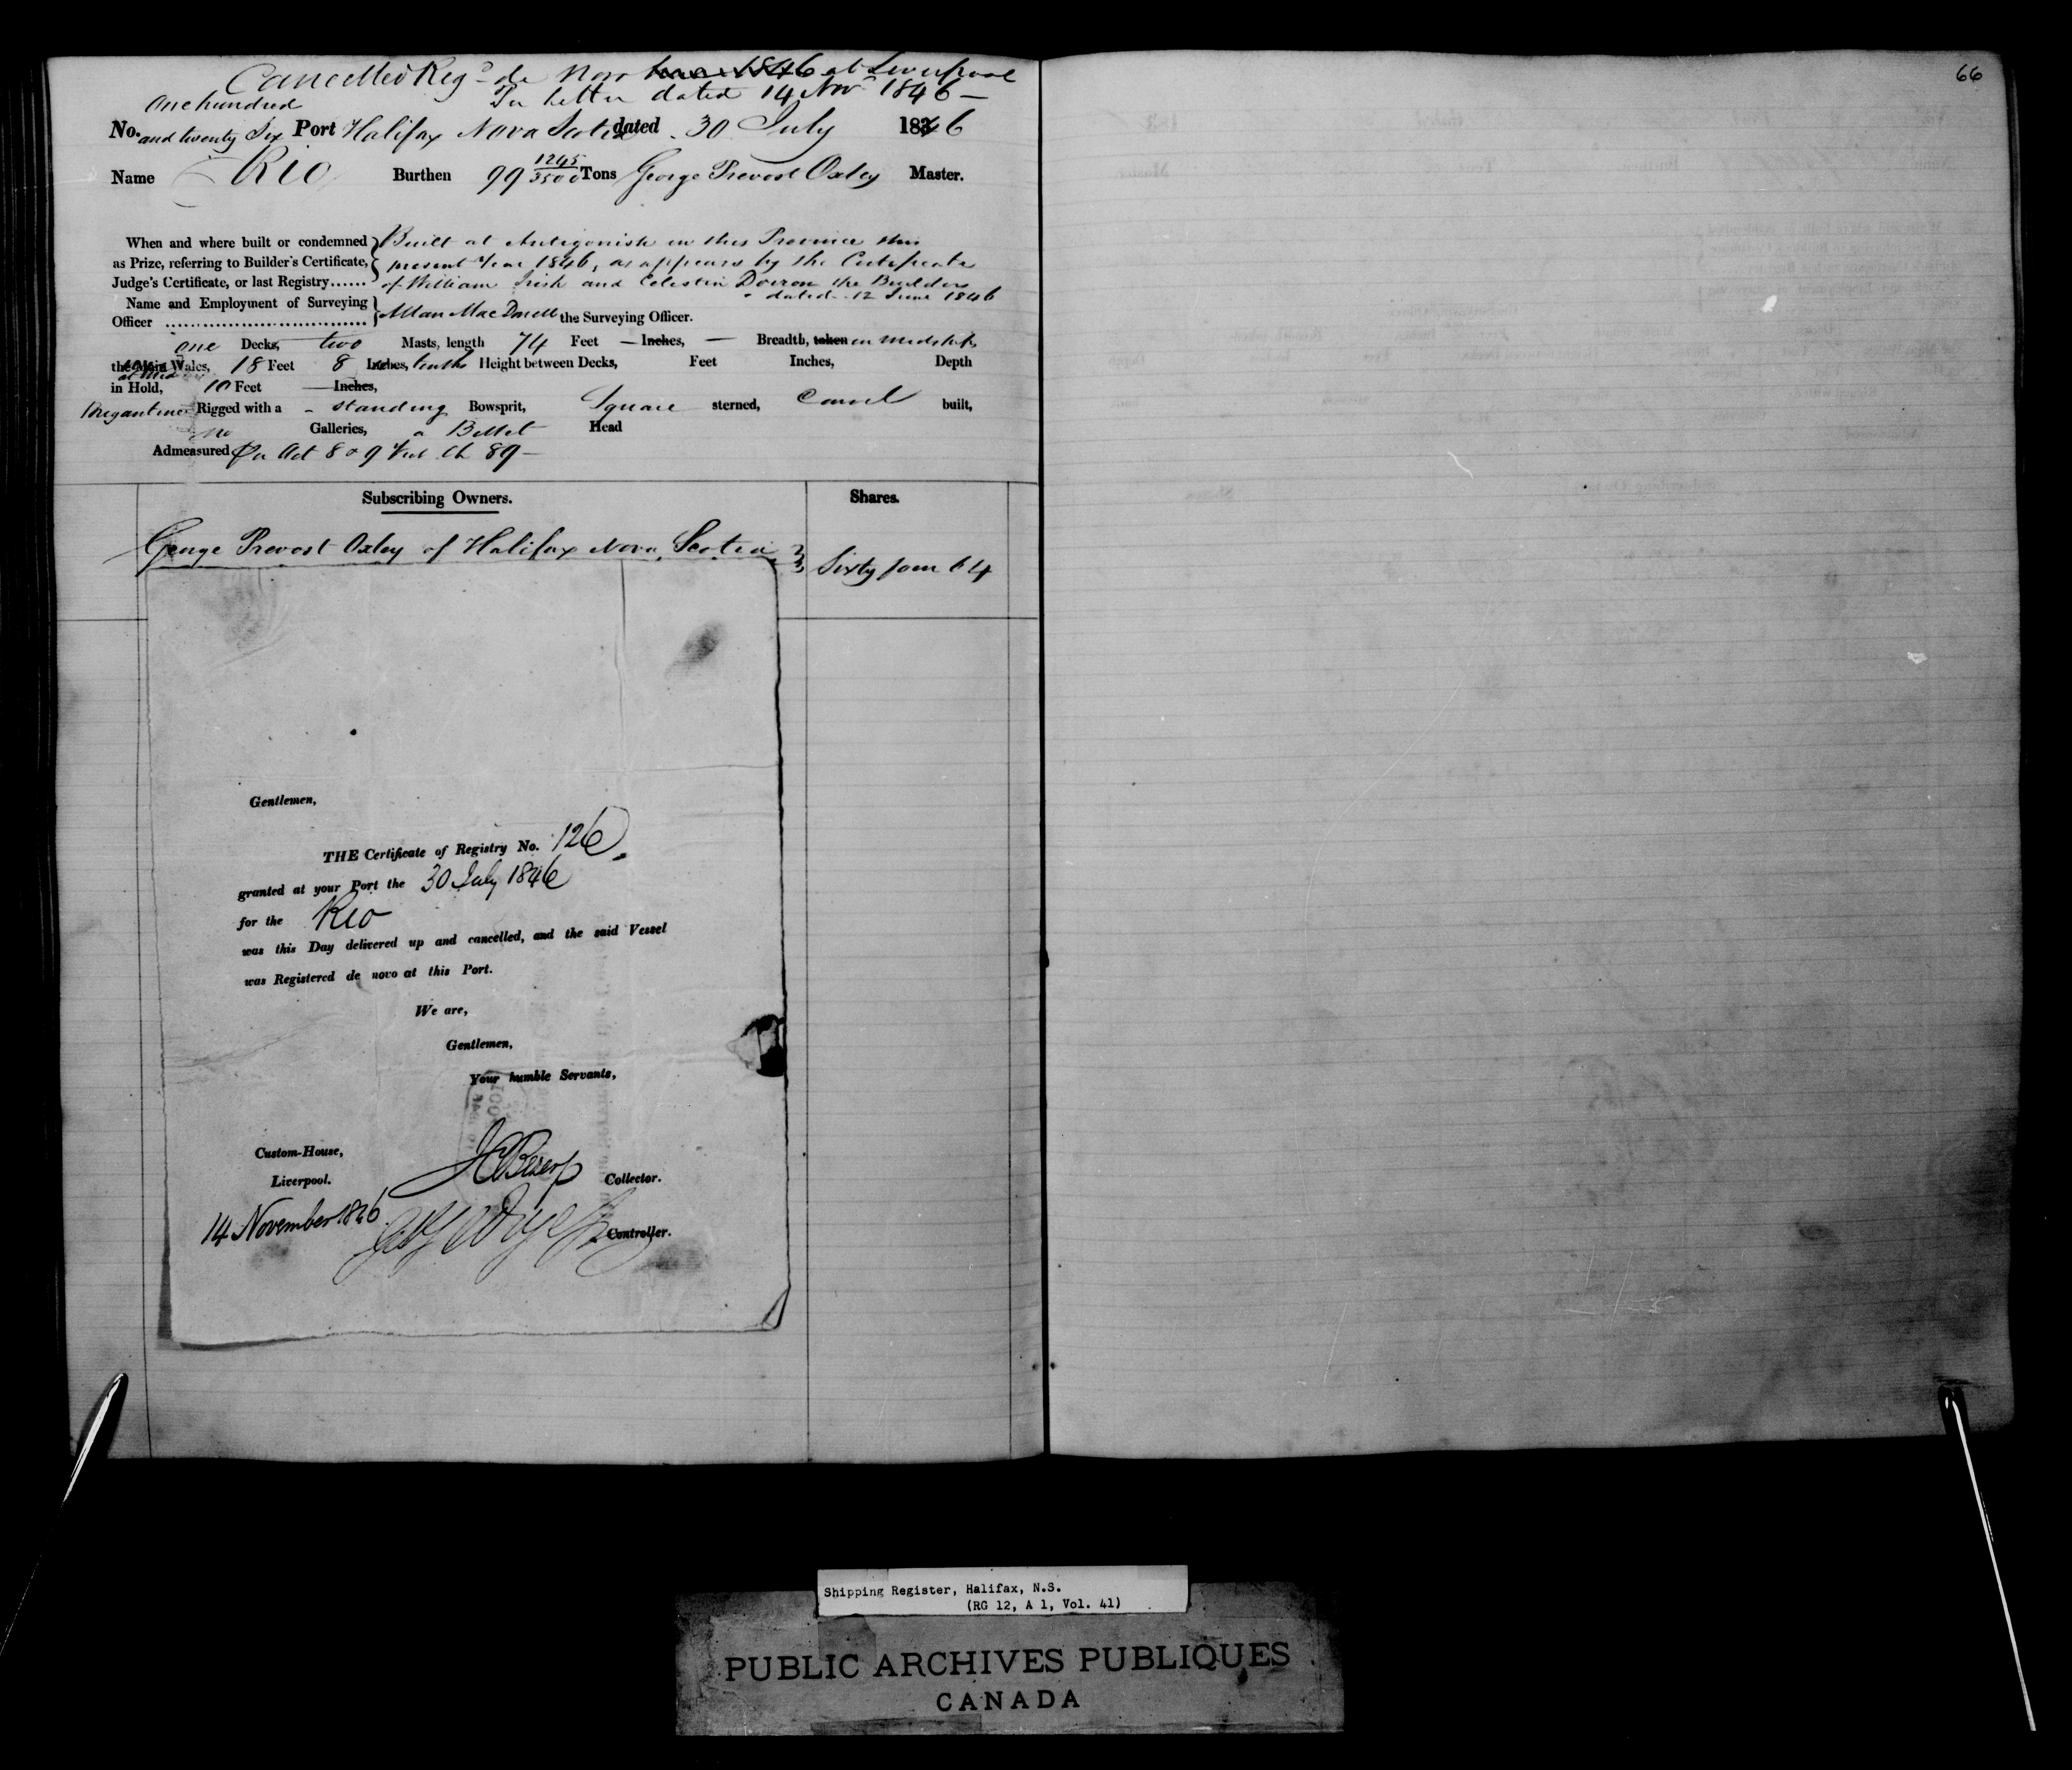 Cancelled Reg^d de Novo at Liverpool
Per letter dated 14 Nov^r 1846 —
One hundred
No. and twenty Six Port Halifax Nova Scotia dated 30 July 1846
Name Rio Burthen 99 1245/3500 Tons George Prevost Oxley Master.
When and where built or condemned Built at Antigonish in this Province this
as Prize, referring to Builder's Certificate, present Year 1846, as appears by the Certificate
Judge's Certificate, or last Registry...... of William Irish and Celestin Doiron the Builders
dated 12 June 1846
Name and Employment of Surveying
Officer .............................. Allan MacDonell the Surveying Officer.
one Decks, two Masts, length 74 Feet — Inches, — Breadth, taken in midships
the Main Wales, 18 Feet 8 Inches, tenths Height between Decks, Feet Inches, Depth
in Hold, 10 Feet — Inches,
Brigantine Rigged with a standing Bowsprit, Square sterned, Carvel built,
no Galleries, a Billet Head
Admeasured Per Act 8 & 9 Vict. Ch 89 —
Subscribing Owners. Shares.
George Prevost Oxley of Halifax Nova Scotia Sixty four 64
Gentlemen,
THE Certificate of Registry No. 126
granted at your Port the 30 July 1846
for the Rio
was this Day delivered up and cancelled, and the said Vessel
was Registered de novo at this Port.
We are,
Gentlemen,
Your humble Servants,
Custom-House,
Liverpool. Collector.
14 November 1846 Controller.
66
Shipping Register, Halifax, N.S.
(RG 12, A 1, Vol. 41)
PUBLIC ARCHIVES PUBLIQUES
CANADA